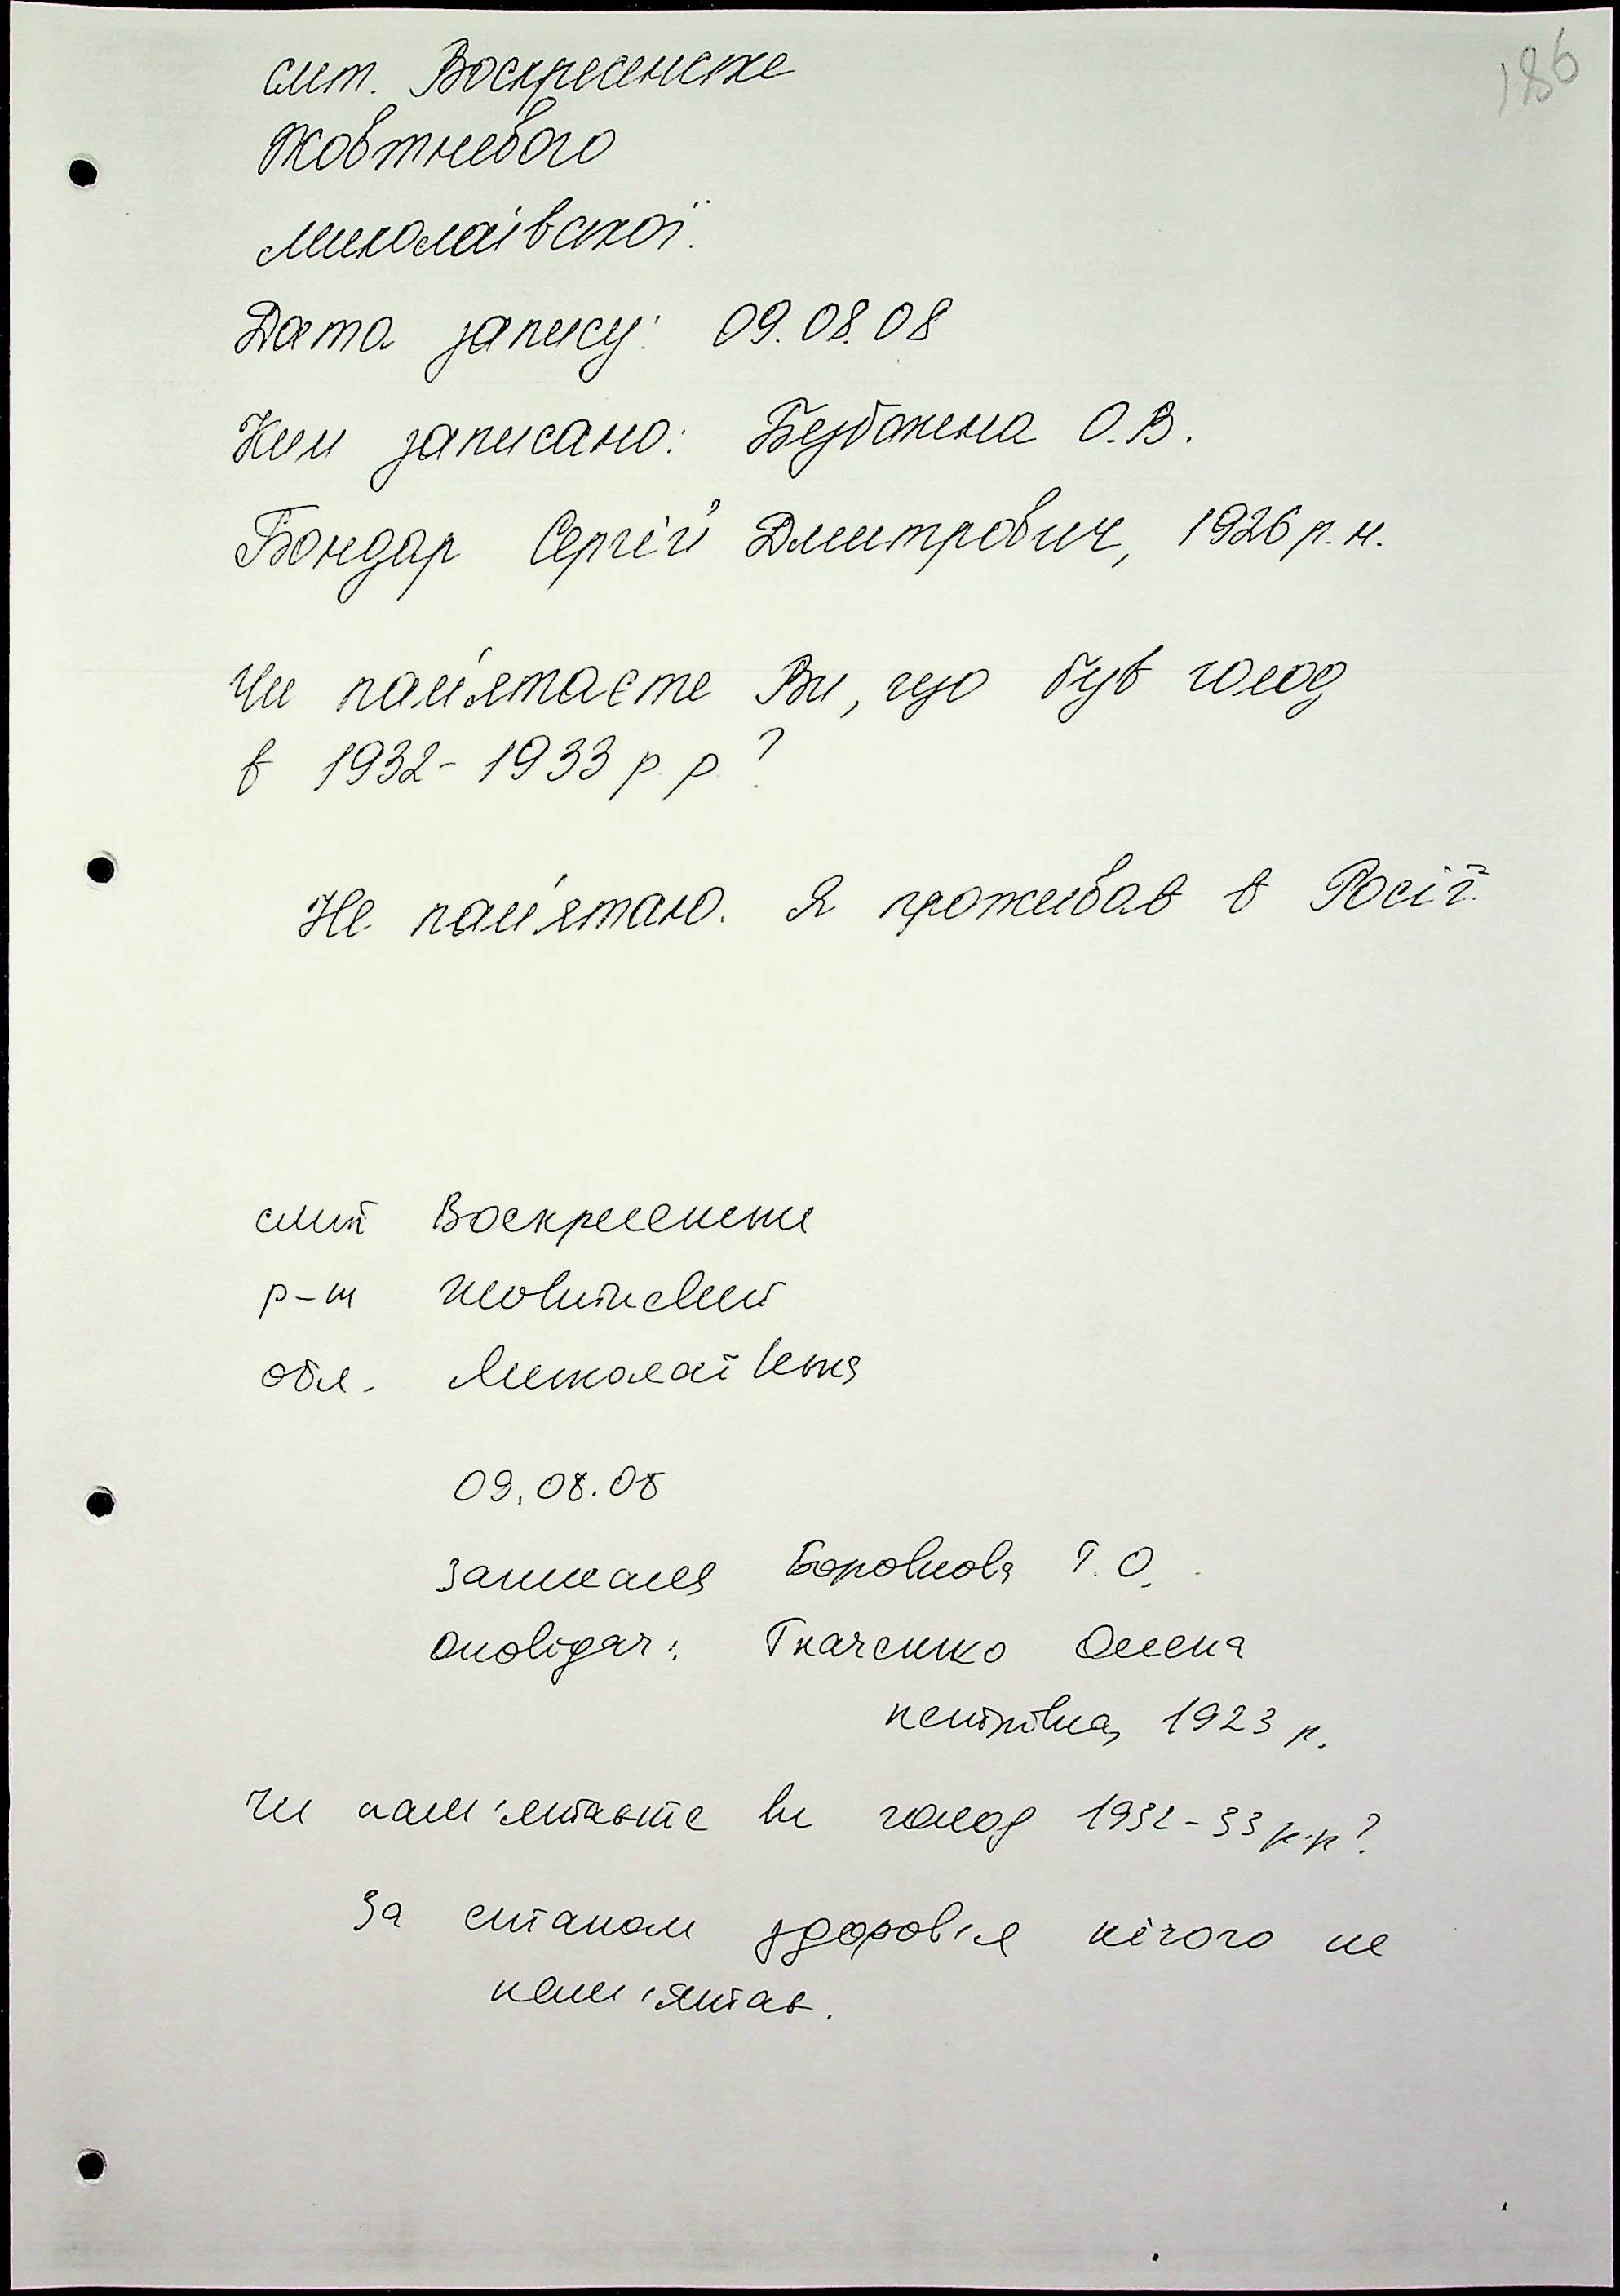 186
смт. Воскресенське
Жовтневого
Миколаївської.
Дата запису: 09.08.08
Ким записано: Безбажена О.В.
Бондар Сергій Дмитрович, 1926 р.н.
Чи пам'ятаєте Ви, що був голод
в 1932-1933 р.р.?
Не пам'ятаю. Я проживав в Росії.
смт Воскресенське
р-н Жовтневий
обл. Миколаївська
09.08.08
Записала Боровкова Т.О.
Оповідач: Ткаченко Олена
Петрівна, 1923 р.
Чи пам'ятаєте ви голод 1932-33 р.р?
За станом здоров'я нічого не
пам'ятає.